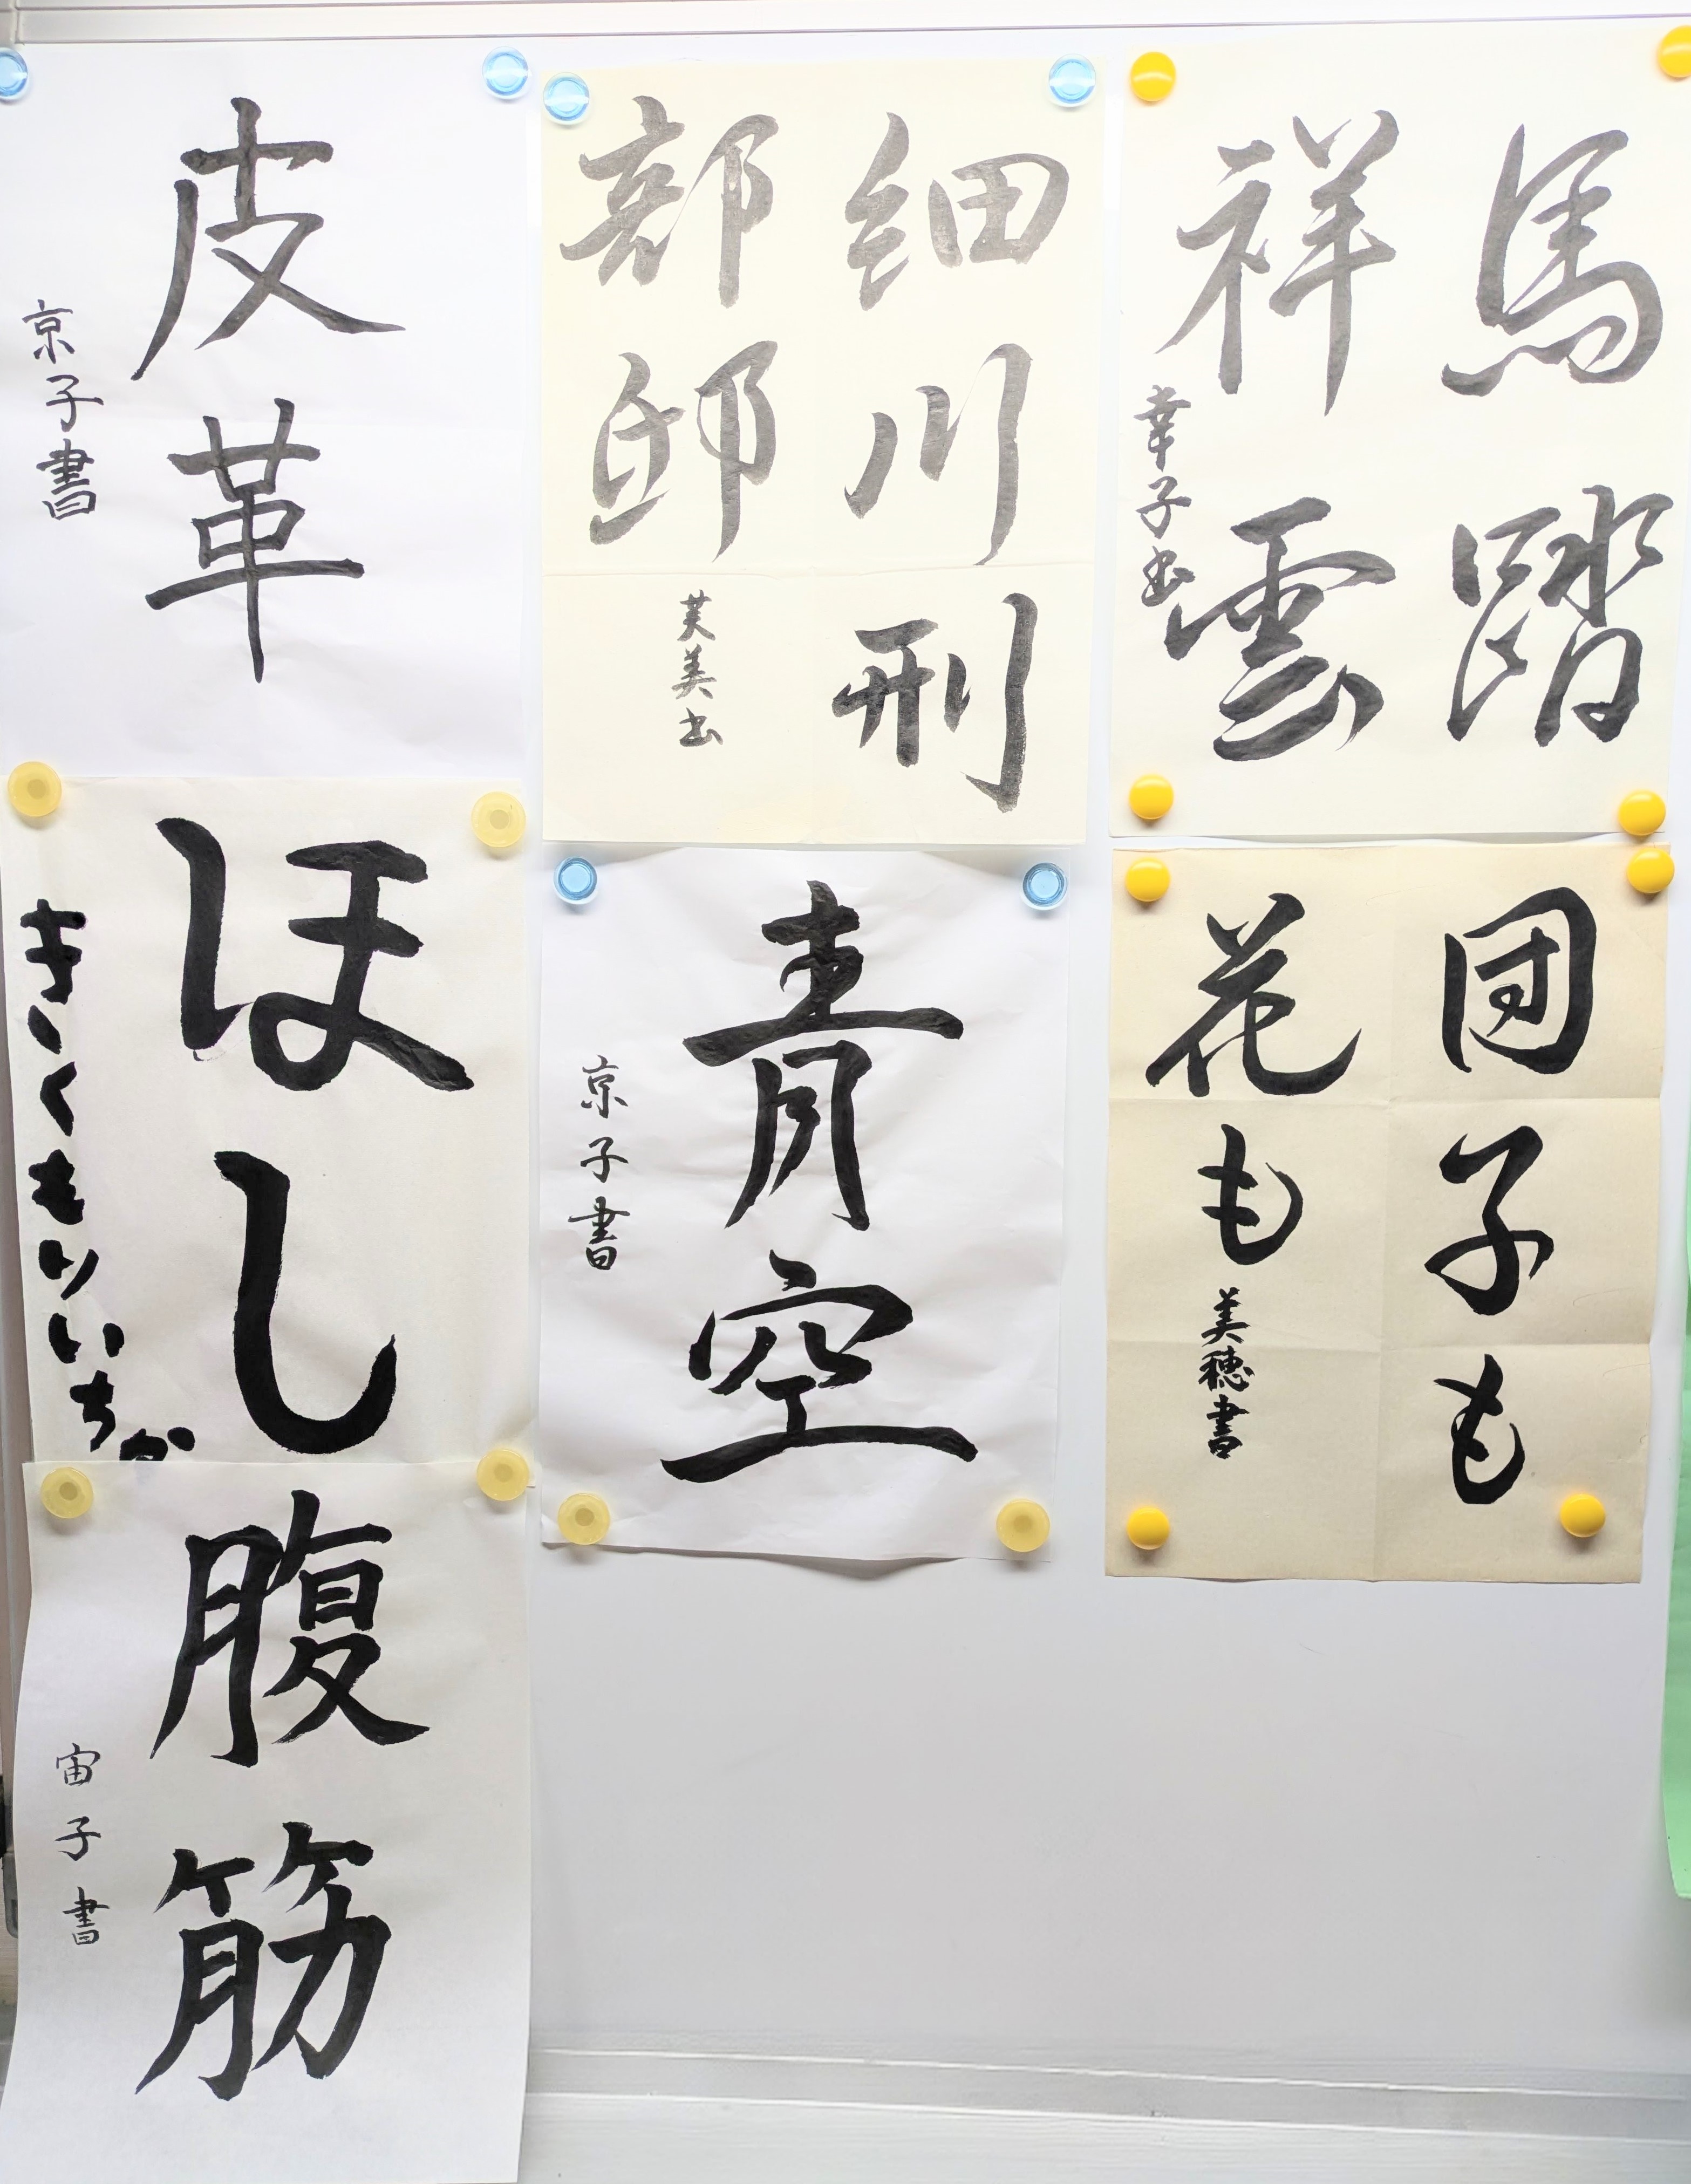 馬踏
祥雲
幸子書
細川刑
部邸
芙美書
皮革
京子書
団子も
花も
美穂書
青空
京子書
ほし
きくもりいちか
腹筋
宙子書